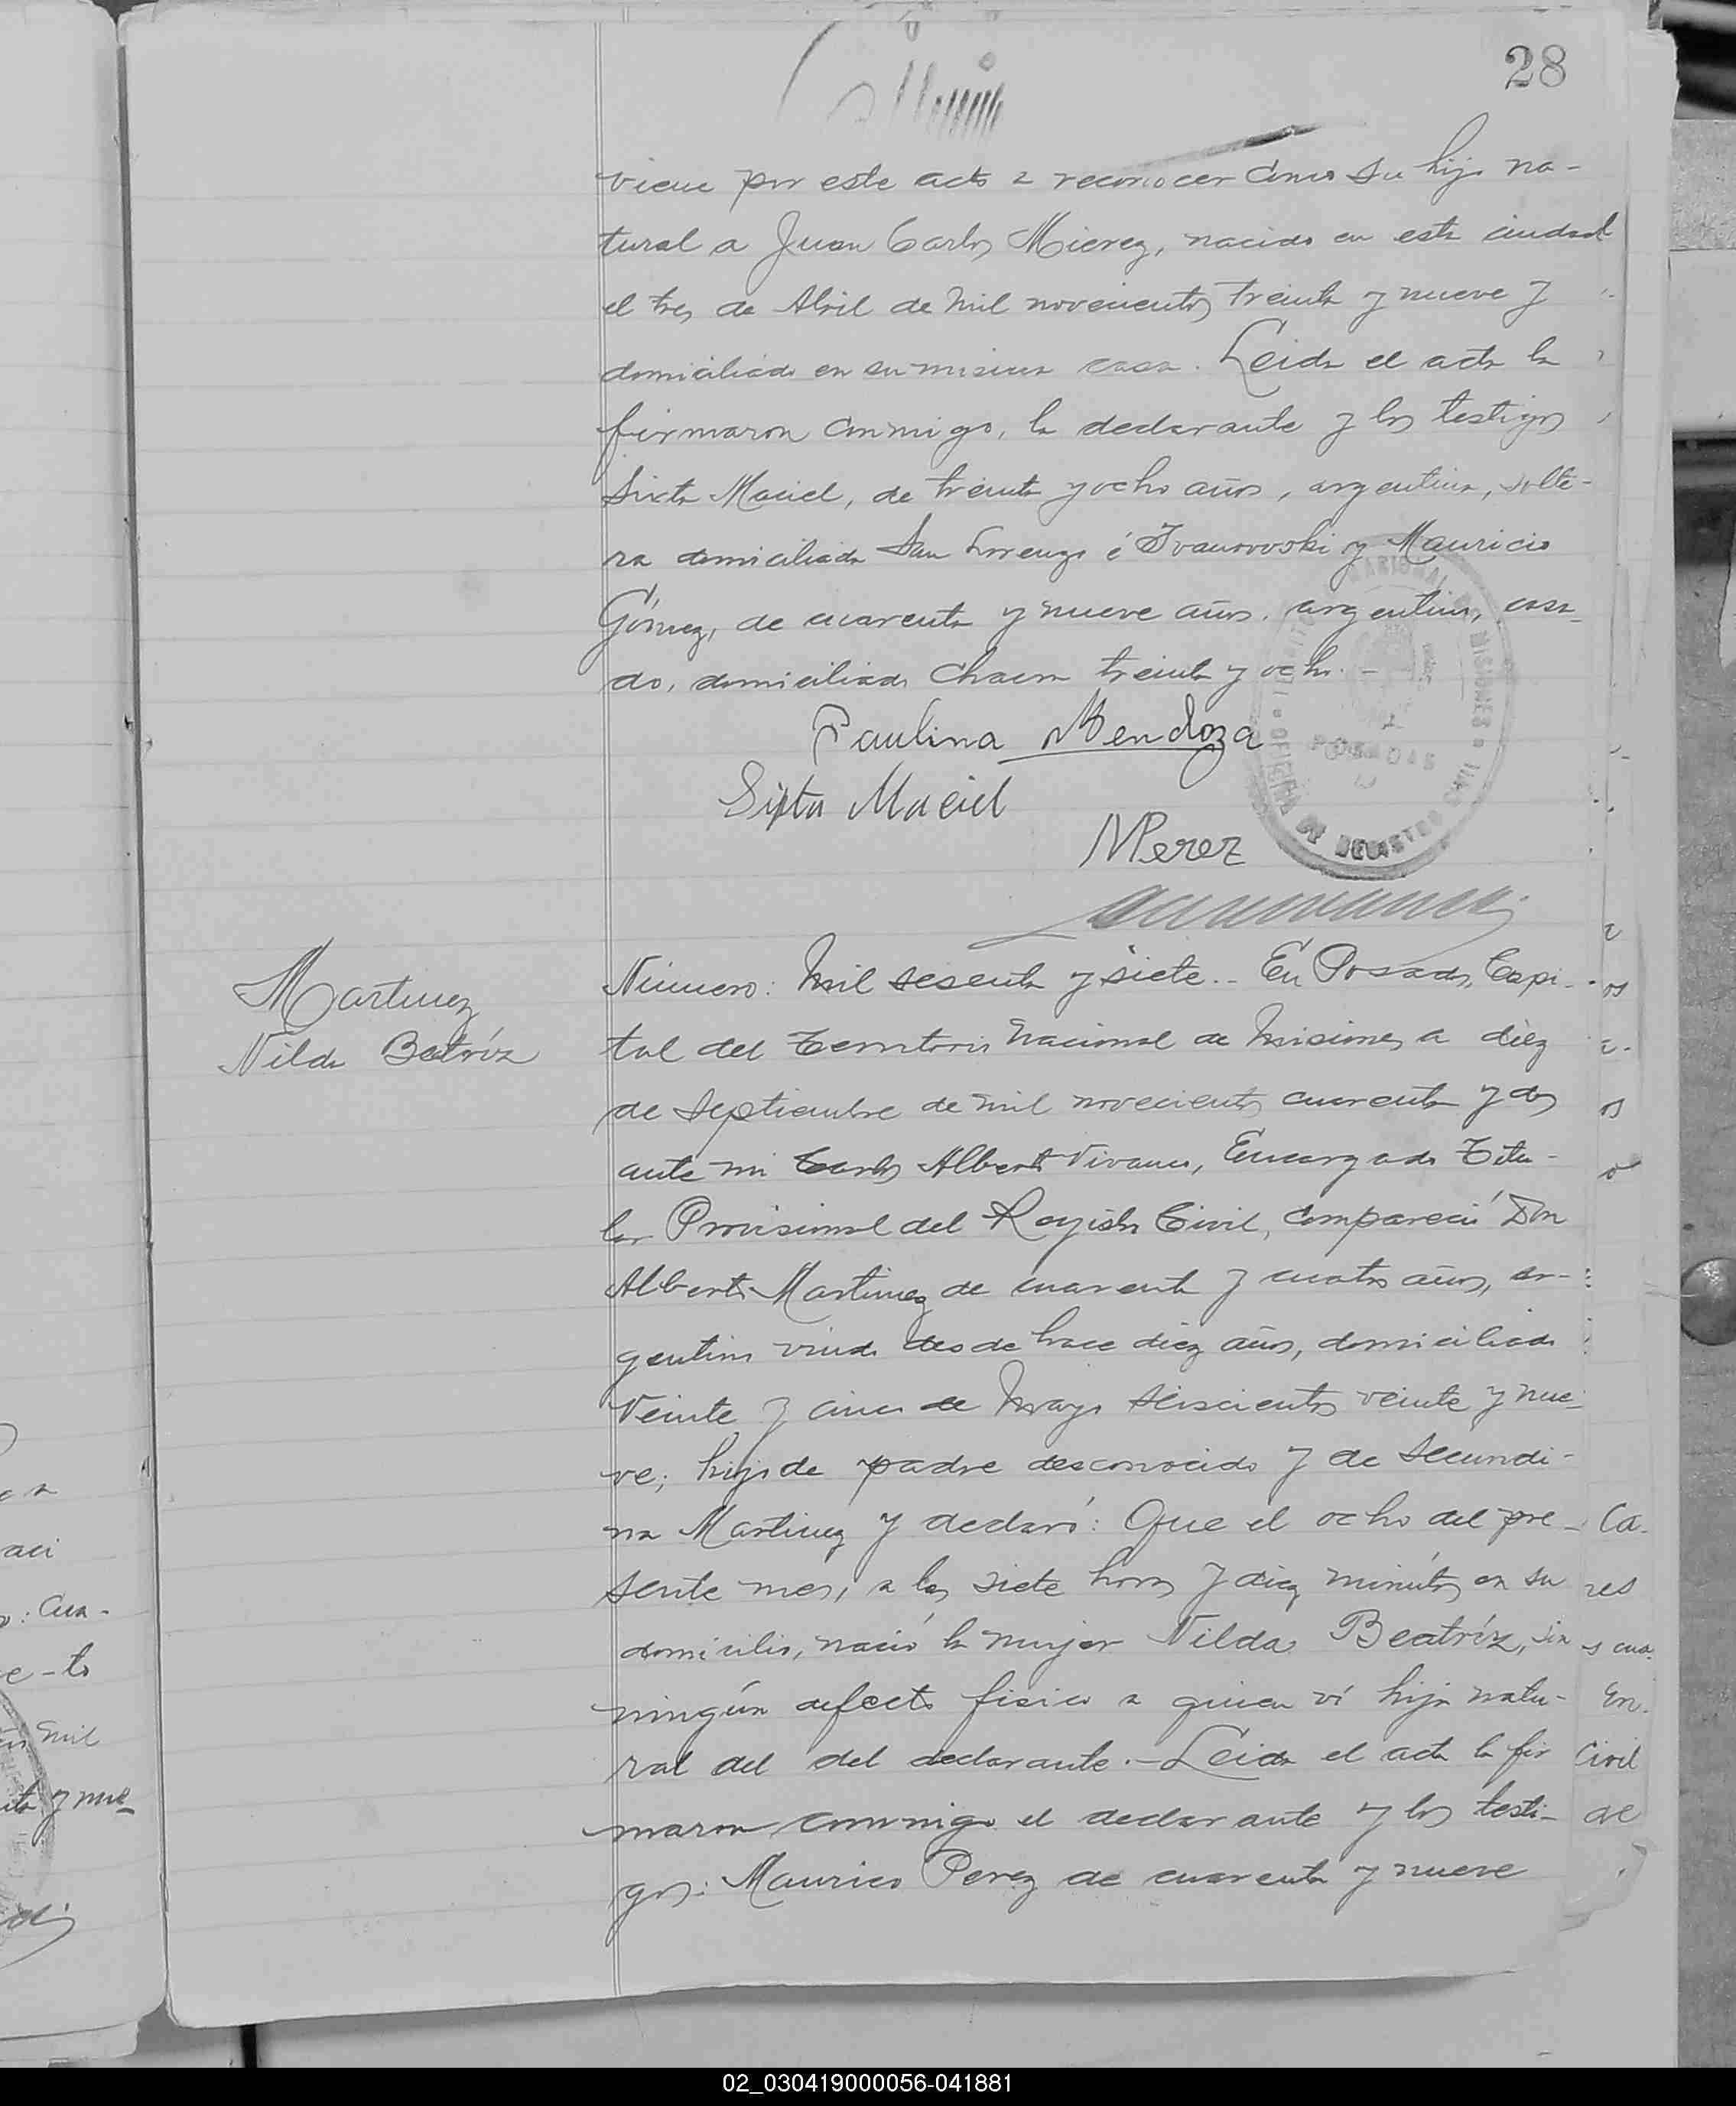 28
viene por este acto a reconocer como su hijo na-
tural a Juan Carlos Mierez, nacido en esta ciudad
el tres de Abril de mil novecientos treinta y nueve y
domiciliado en su misma casa. Leida el acta la
firmaron conmigo, la declarante y los testigos
Sixta Maciel, de treinta y ocho años, argentina, solte-
ra domiciliada San Lorenzo é Ivanowski y Mauricio
Gómez, de cuarenta y nueve años, argentino, casa-
do, domiciliado Chacra treinta y ocho.-
Paulina Mendoza
Sixta Maciel
MPerez
POSADAS
MISIONES
OFICINA DE REGISTRO
Martinez
Nilda Beatríz
Número: Mil sesenta y siete.- En Posadas, Capi-
tal del Territorio Nacional de Misiones a diez
de Septiembre de mil novecientos cuarenta y dos
ante mi Carlos Alberto Vivanco, Encargado Titu-
lar Provisional del Registro Civil, compareció Don
Alberto Martinez de cuarenta y cuatro años, ar-
gentino viudo desde hace diez años, domiciliado
Veinte y cinco de Mayo seiscientos veinte y nue-
ve; hijo de padre desconocido y de Secundi-
na Martinez y declaró: Que el ocho del pre-
sente mes, a las siete horas y diez minutos en su
domicilio, nació la mujer Nilda Beatríz, sin
ningún defecto fisico a quien ví hija natu-
ral del del declarante.- Leida el acta la fir
maron conmigo el declarante y los testi-
gos: Maurico Perez de cuarenta y nueve
Ca-
res
s cua-
En.
Civil
de
aci
o: Cua-
e-to
mil
y nue-
02_030419000056-041881